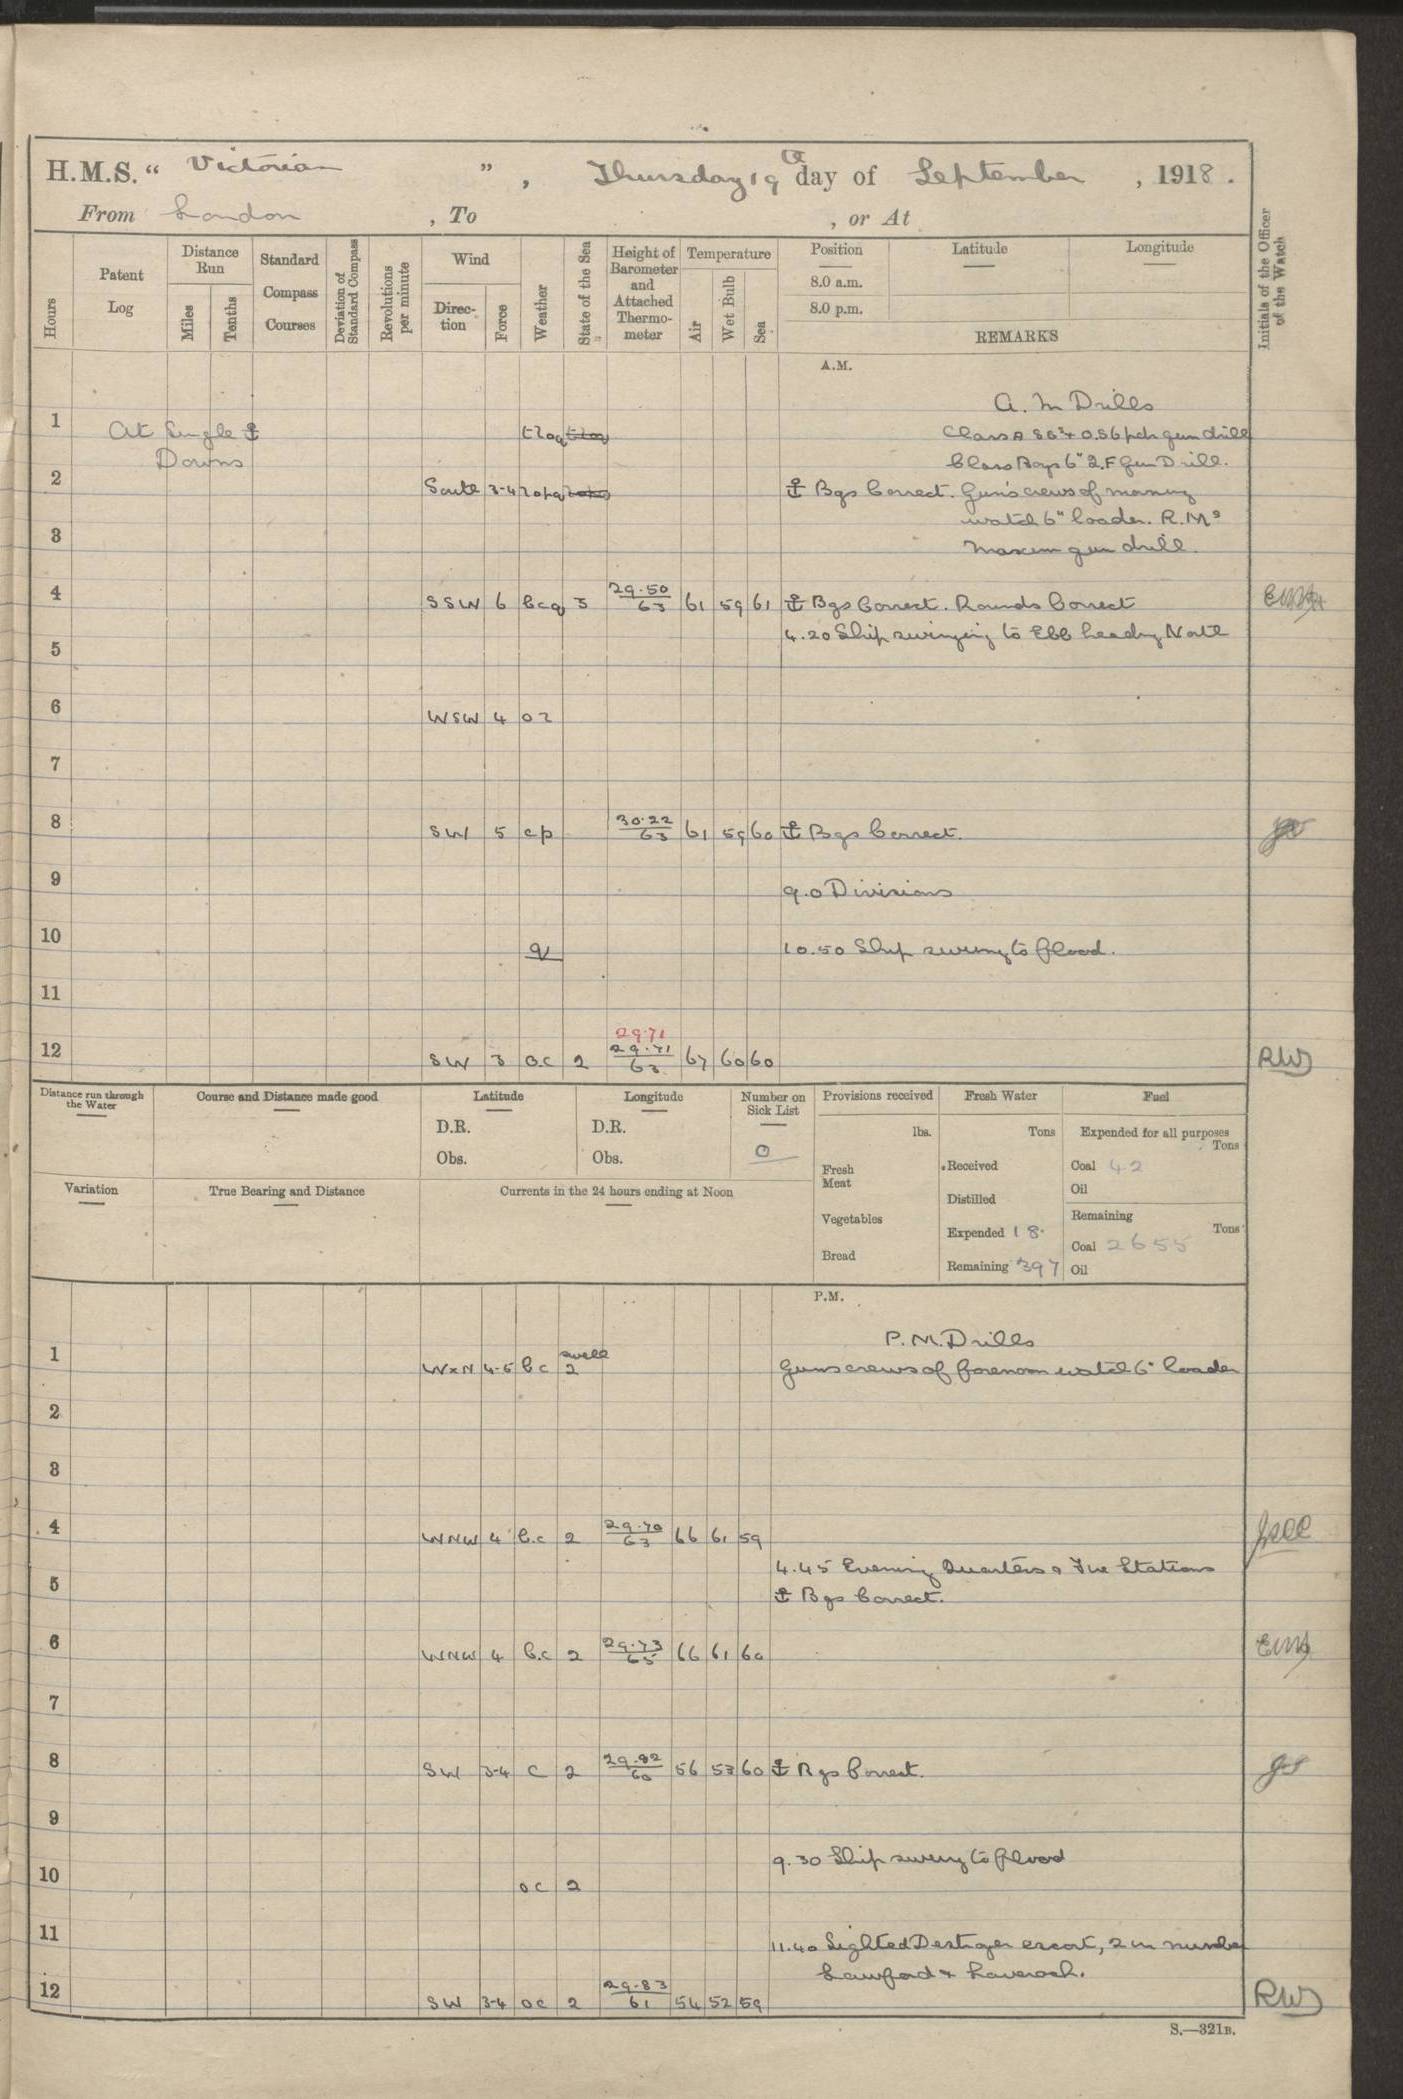 H.M.S. “ Victorian ” , Thursday 19th day of September , 1918 .
From London , To , or At
Hours
Patent Log
Distance Run
Miles
Tenths
Standard Compass Courses
Deviation of Standard Compass
Revolutions per minute
Wind
Direc-tion
Force
Weather
State of the Sea
Height of Barometer and Attached Thermo-meter
Temperature
Air
Wet Bulb
Sea
Position
8.0 a.m.
8.0 p.m.
Latitude
Longitude
REMARKS
Initials of the Officer of the Watch
A.M.
A.M Drills
1 At Single ⚓ gun drill
Downs Class Boys 6" Q.F Gun Drill.
2 South 3-4 ⚓ Bgs Correct. Guns crews of morning
watch 6" loader. R.Ms
3 Maxim gun drill.
4 SSW 6 bcq 3 29.50/63 61 59 61 ⚓ Bgs Correct. Rounds Correct
4.20 Ship swinging to Ebb heading North
5
6 WSW 4 or
7
8 SW 5 cp 30.22/63 61 59 60 ⚓ Bgs Correct.
9 9.0 Divisions
10 q 10.50 Ship swung to flood.
11
29.71
12 SW 3 o.c 2 29.71/63 67 60 60 RW
Distance run through the Water
Course and Distance made good
Latitude
D.R.
Obs.
Longitude
D.R.
Obs.
Number on Sick List
0
Provisions received
lbs.
Fresh Meat
Vegetables
Bread
Fresh Water
Tons
Received
Distilled
Expended 18.
Remaining 397
Fuel
Expended for all purposes
Tons
Coal 42
Oil
Remaining
Tons
Coal 2655
Oil
Variation
True Bearing and Distance
Currents in the 24 hours ending at Noon
P.M.
P.M. Drills
swell
1 WxN 4-5 bc 2 Guns crews of forenoon watch 6" loader
2
3
4 WNW 4 b.c 2 29.70/63 66 61 59
4.45 Evening Quarters & Fire Stations
5 ⚓ Bgs Correct.
6 WNW 4 b.c 2 29.73/65 66 61 60
7
8 SW 3-4 c 2 29.82/60 56 53 60 ⚓ Bgs Correct.
9
9.30 Ship swung to flood
10 oc 2
11 11.40 Sighted Destroyer escort, 2 in number
Lawford & Laverock.
12 SW 3-4 oc 2 29.83/61 54 52 59 RW
S.—321B.